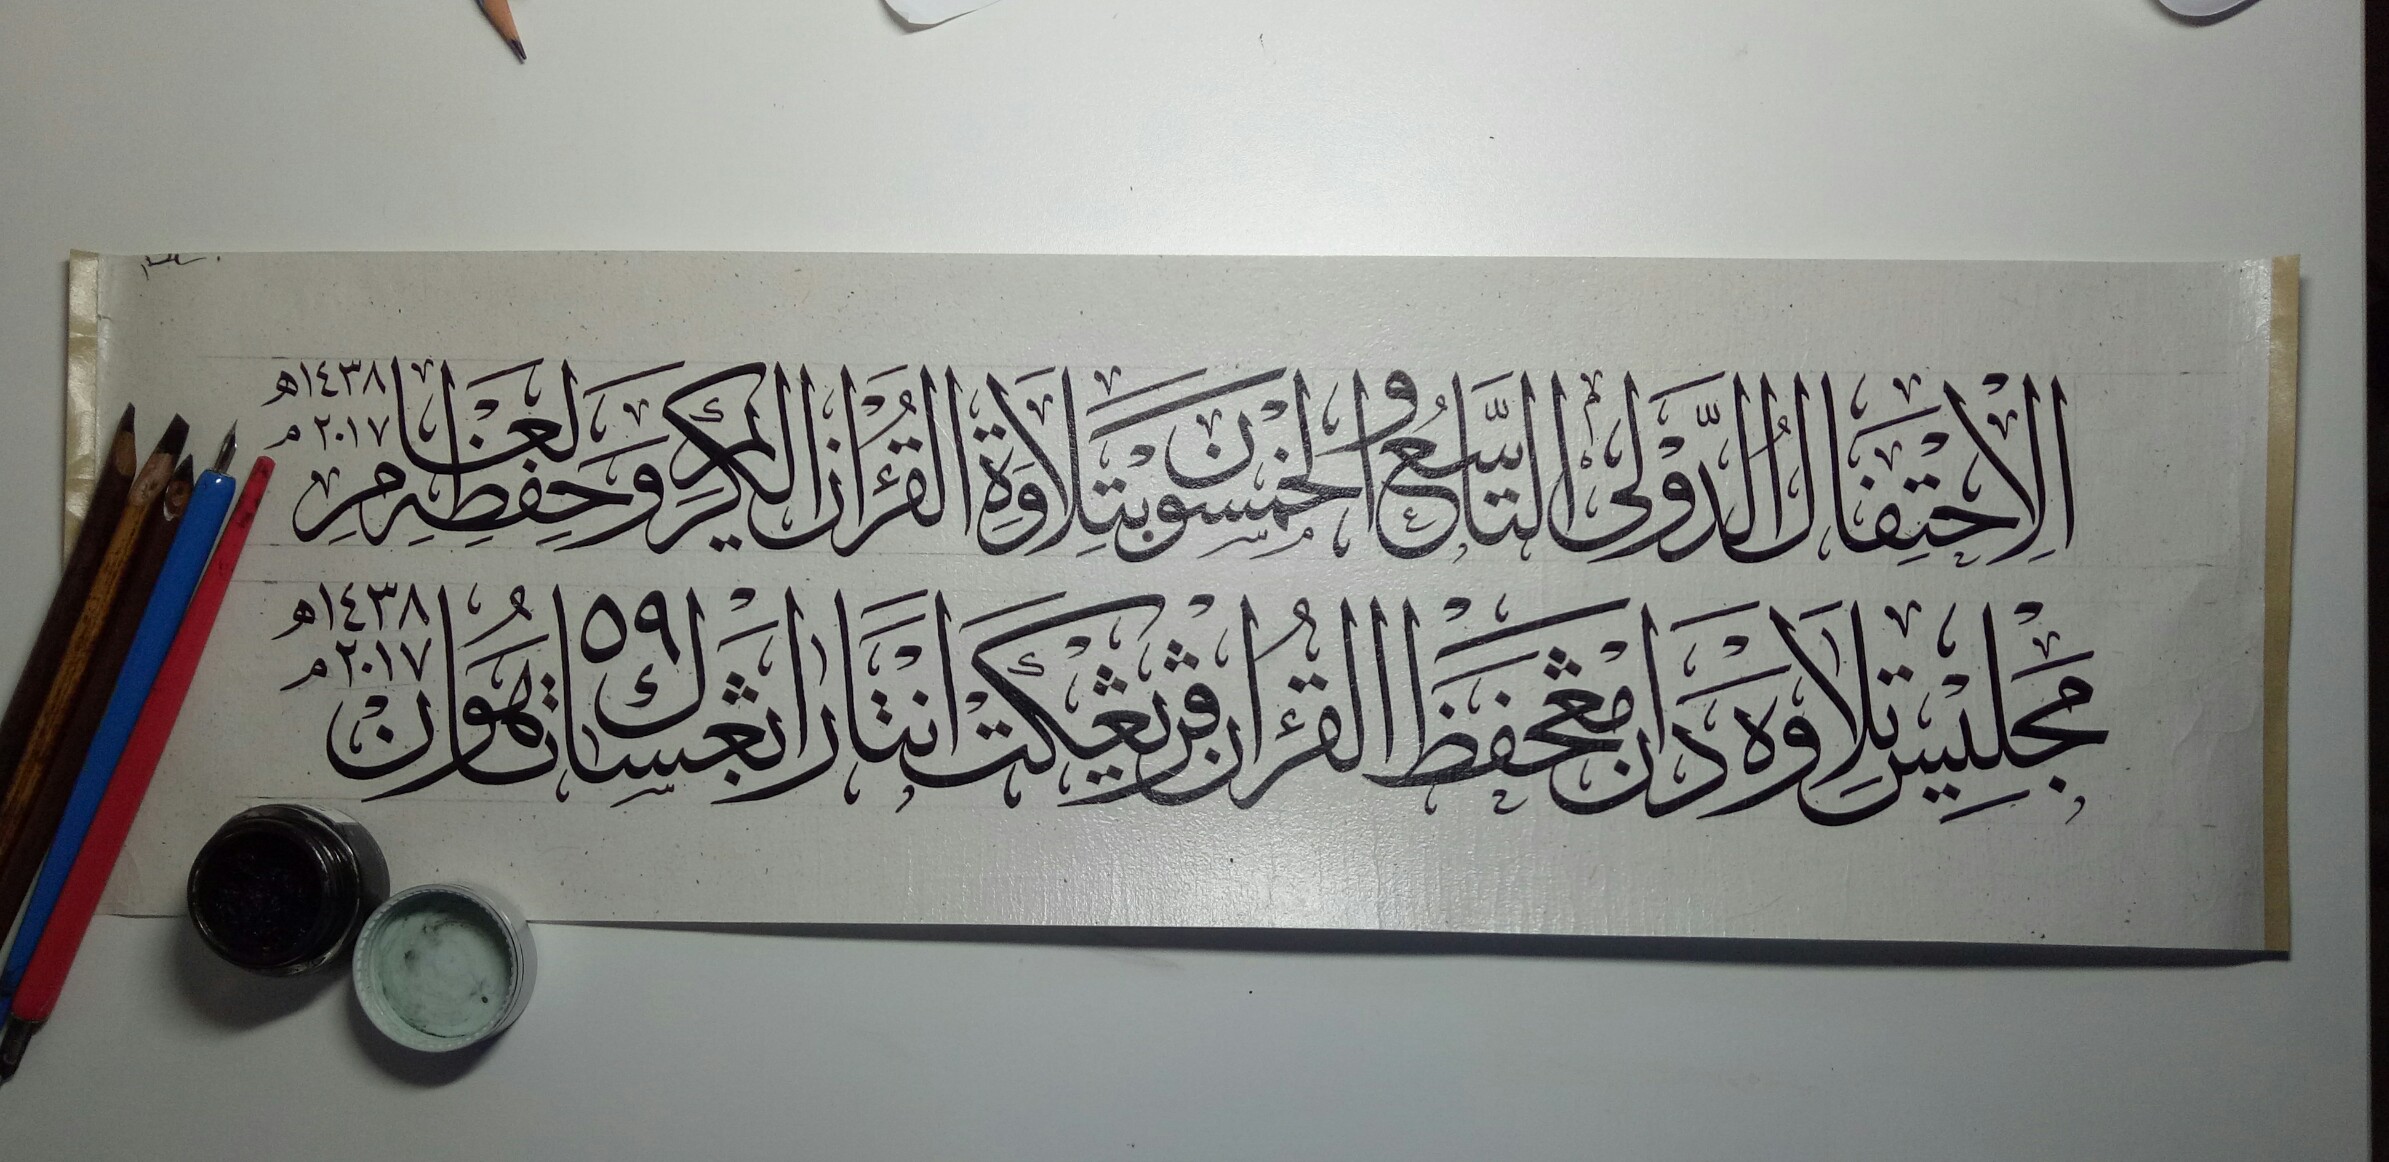 الاحتفال الدولي التاسع والخمسون بتلاوة القرءان الكريم وحفظه لعام ١٤٣٨هـ ٢٠١٧م
مجليس تلاوه دان مڠحفظ القرءان ڤريڠکت انتارابڠسا ك ٥٩ تاهون ١٤٣٨هـ ٢٠١٧م